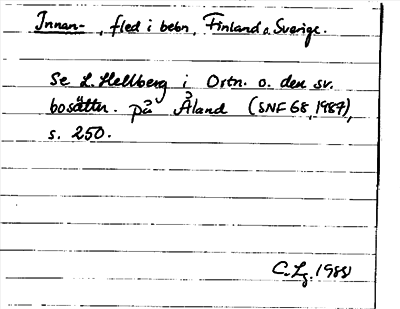 Innan-, fled i bebn, Finland o. Sverige.
Se L. Hellberg i Ortn. o. den sv.
bosättn. på Åland (SNF 68, 1987),
s. 250.
C. Lg. 1988